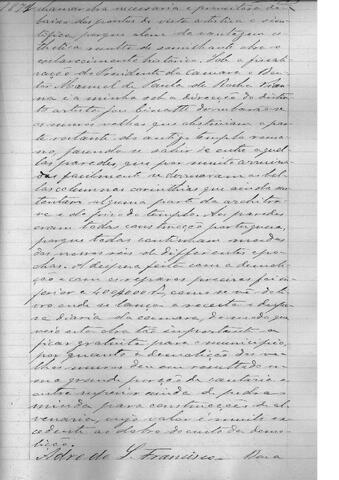 1871
chamar obra necessaria e proveitosa de-
baixo dos pontos de vista artistico e scien-
tifico, porque alem da vantagem es-
thetica resulta de semelhante obra o
esclarecimento historico. Sob a fiscali-
sação do Presidente da Camara o Ba-
charel Manuel de Paula da Rocha Vianna
e a minha sob a direcção do distin-
to artista João Cinatti derrubaram-se
os muros velhos que obstruiam a par-
te restante do antigo templo roma-
no, fazendo-se sahir de entre aquel-
las paredes, que por muito arruina-
das facilmente se derrocaram as bel-
las columnas corinthias que ainda sus-
tentam alguma parte da architra-
ve e do friso do templo. As paredes
eram todas construcção portugueza,
porque todas continham moedas
dos nossos reis de differentes epo-
chas. A despeza feita com a demoli-
ção e com os reparos precisos foi in-
ferior a como se vê do li-
vro onde se lança a receita e despe-
za diaria da camara, de modo que
veio esta obra tão importante a
ficar gratuita para o municipio,
por quanto a demolição dos ve-
lhos muros deu em resultado u-
ma grande porção de cantaria e
outra superior ainda de pedra
miuda para construcções de al-
venaria, cujo valor é muito ex-
cedente ao do custo da demo-
lição.
Adro de S. Francisco — Para